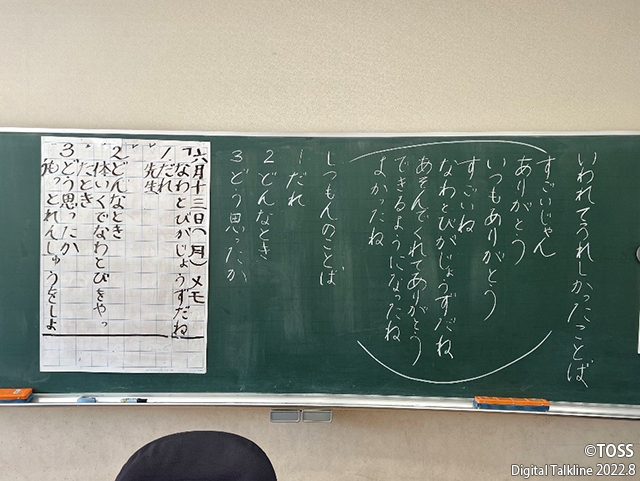 いわれてうれしかったことば
すごいじゃん
ありがとう
いつもありがとう
すごいね
なわとびがじょうずだね
あそんでくれてありがとう
できるようになったね
よかったね
しつもんのことば
1 だれ
2 どんなとき
3 どう思ったか
六月十三日(月)メモ
「なわとびがじょうずだね」
1 だれ
・先生
2 どんなとき
・体いくでなわとびをやっ
たとき
3 どう思ったか
・もっとれんしゅうをしよ
©TOSS
Digital Talkline 2022.8